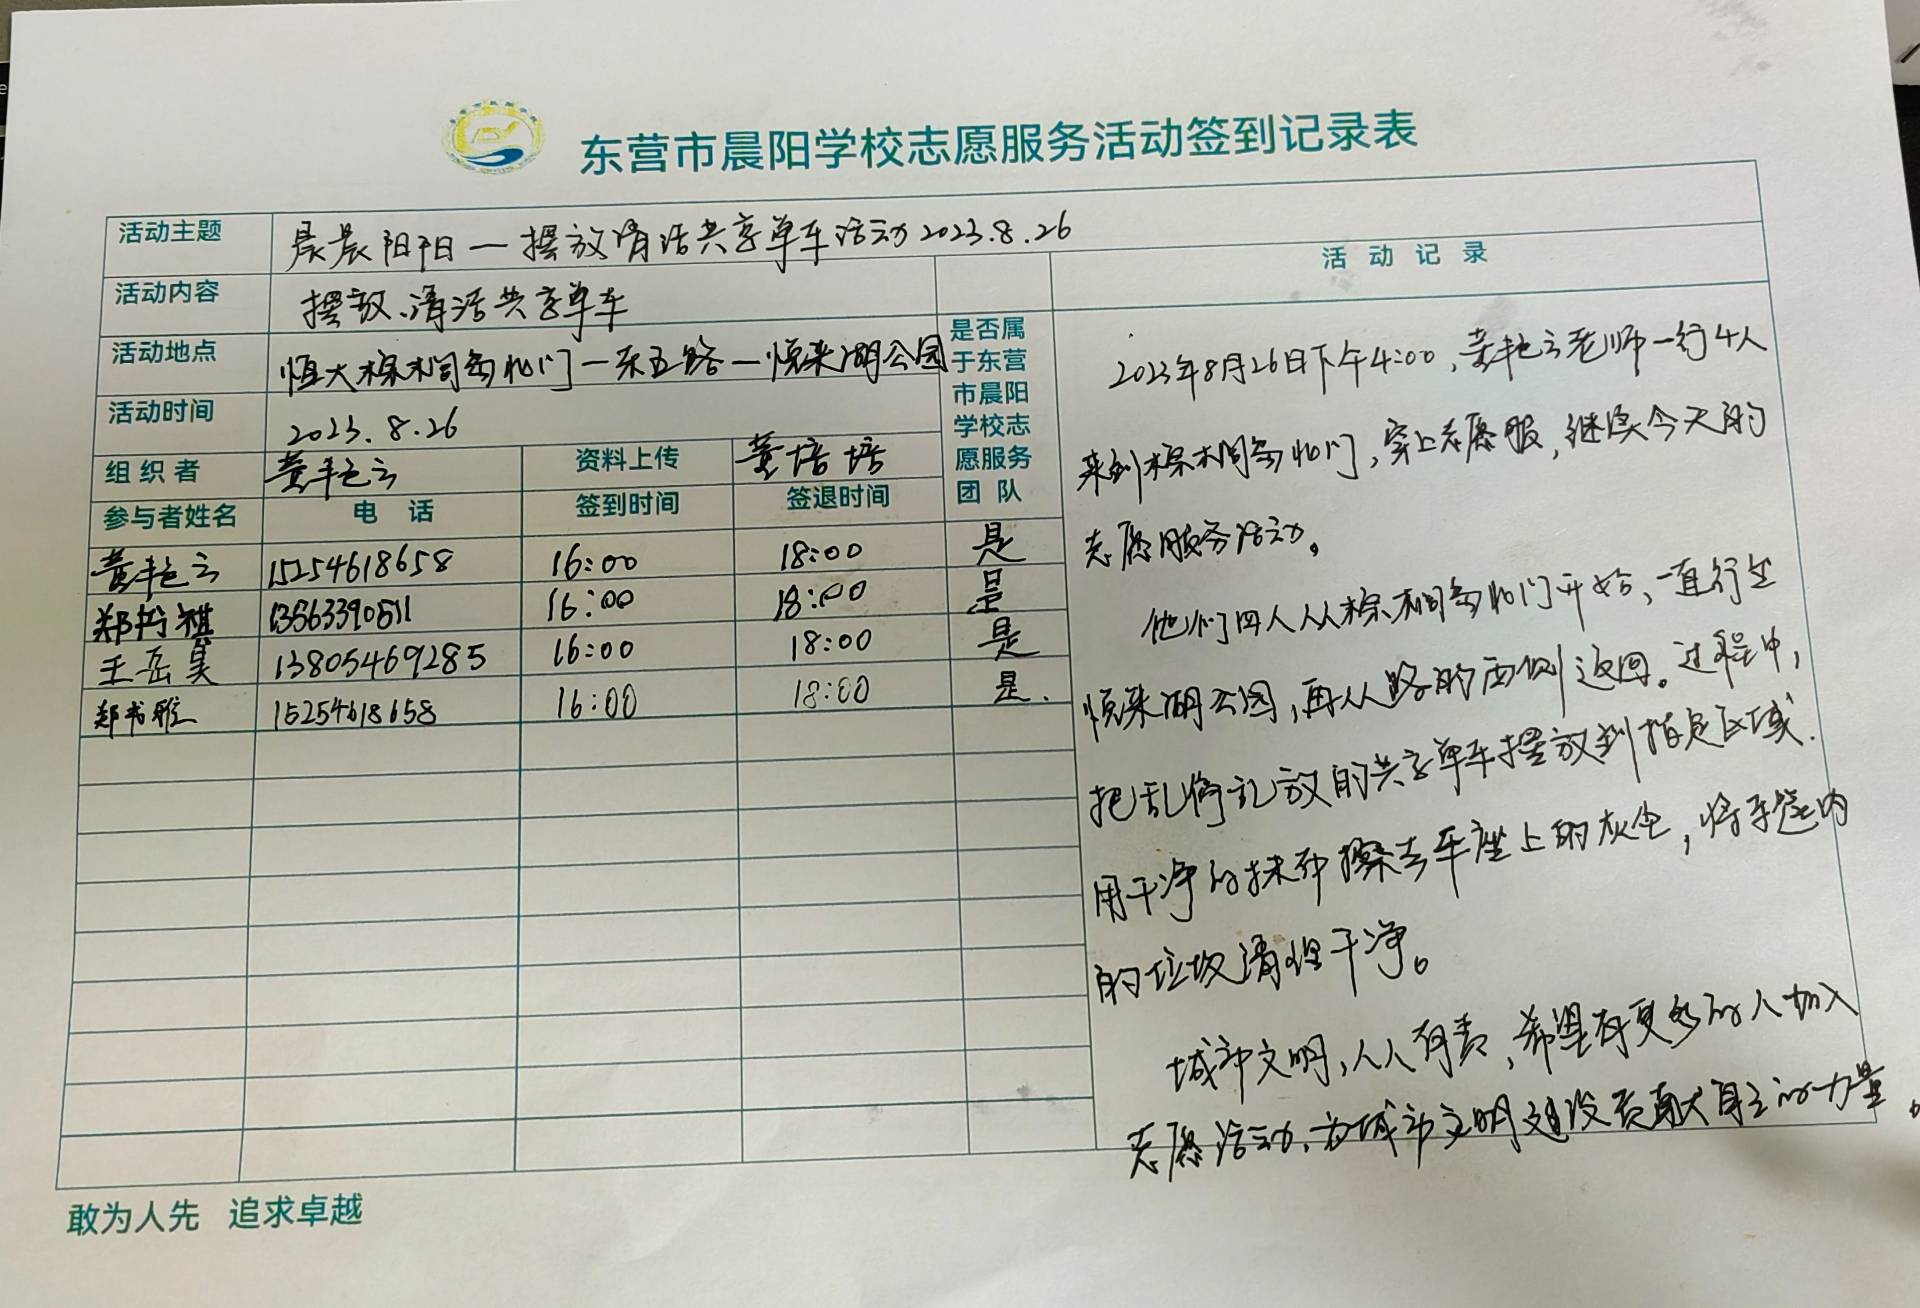 东营市晨阳学校志愿服务活动签到记录表
活动主题 晨晨阳阳—摆放清洁共享单车活动2023.8.26
活动内容 摆放、清洁共享单车
活动地点 恒大棕榈岛北门—东五路—悦来湖公园
活动时间 2023.8.26
组织者 黄艳云 资料上传 黄培培
参与者姓名 电话 签到时间 签退时间 是否属于东营市晨阳学校志愿服务团队
黄艳云 15254618658 16:00 18:00 是
郑 祺 13563390511 16:00 18:00 是
王岳昊 13805469285 16:00 18:00 是
郑书雅 15254618658 16:00 18:00 是.
活动记录
2023年8月26日下午4:00,黄艳云老师一行4人
来到棕榈岛北门,穿上志愿服,继续今天的
志愿服务活动。
他们四人从棕榈岛北门开始,一直行至
悦来湖公园,再从路的西侧返回。过程中,
把乱停乱放的共享单车摆放到指定区域.
用干净的抹布擦去车座上的灰尘,将车筐内
的垃圾清理干净。
城市文明,人人有责,希望有更多的人加入
志愿活动,为城市文明建设贡献自己的力量。
敢为人先 追求卓越